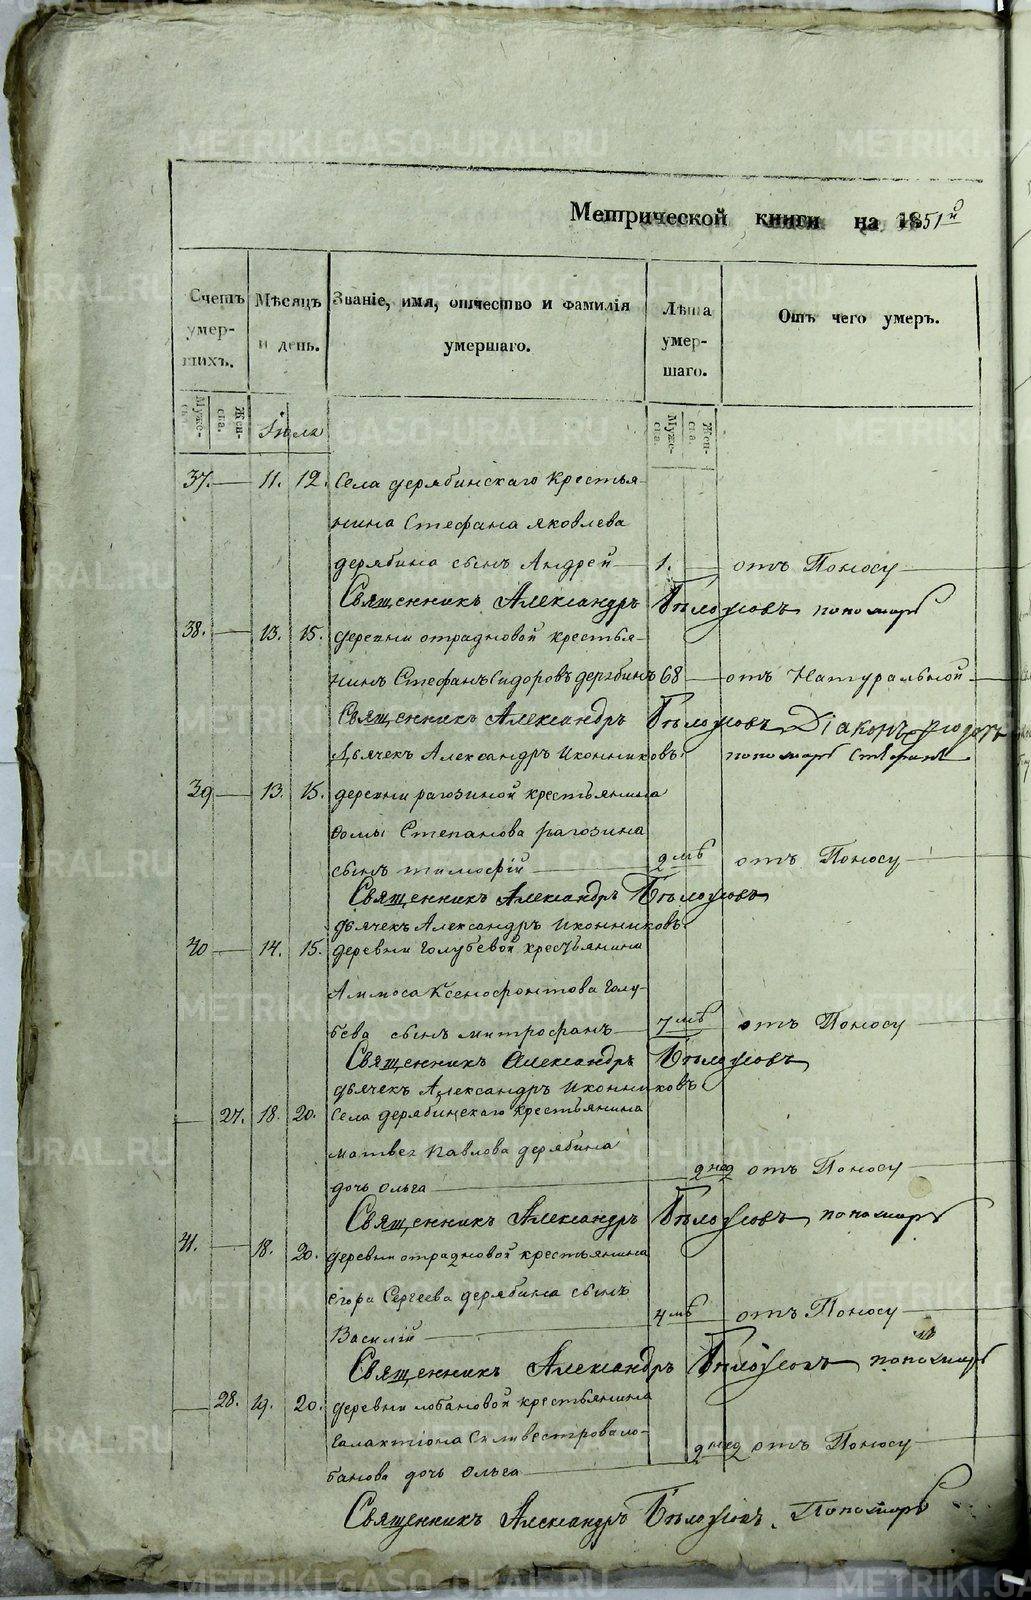 Метрической книги на 1851й
Счетъ умер-шихъ.
Мѣсяцъ и день.
Званіе, имя, отчество и фамилія умершаго.
Лѣта умер-шаго.
Отъ чего умеръ.
Муже-ска. Жен-ска. Муже-ска. Жен-ска.
Іюля
37. 11. 12. Села дерябинскаго крестья-
нина Стефана яковлева
дерябина сынъ Андрей 1. отъ Поносу
Священникъ Александръ Бѣлоусовъ пономарь
38. 13. 15. деревни отрадновой крестья-
нинъ Стефанъ Сидоровъ дерябинъ 68 отъ Натуральной
Священникъ Александръ Бѣлоусовъ Діаконъ
Дьячекъ Александръ Иконниковъ. пономарь Стефанъ
39 13. 15. деревни рагозиной крестьянина
Фомы Степанова рагозина
сынъ тимофей 9 мѣ отъ Поносу
Священникъ Александръ Бѣлоусовъ
дьячекъ Александръ Иконниковъ.
40 14. 15. деревни голубевой крестьянина
Аммоса Ксенофонтова голу-
бева сынъ митрофанъ 7 мѣ отъ Поносу
Священникъ Александръ Бѣлоусовъ
дьячекъ Александръ Иконниковъ.
27. 18. 20. Села дерябинскаго крестьянина
матвея Павлова дерябина
дочь Ольга 2 нед отъ Поносу
Священникъ Александръ Бѣлоусовъ пономарь
41. 18. 20. деревни отрадновой крестьянина
егора Сергеева дерябина сынъ
Василій 4 мѣ отъ Поносу
Священникъ Александръ Бѣлоусовъ пономарь
28. 19. 20. деревни лобановой крестьянина
галактіона Силивестрова ло-
банова дочь Ольга 2 нед отъ Поносу
Священникъ Александръ Бѣлоусовъ. Пономарь
METRIKI.GASO-URAL.RU